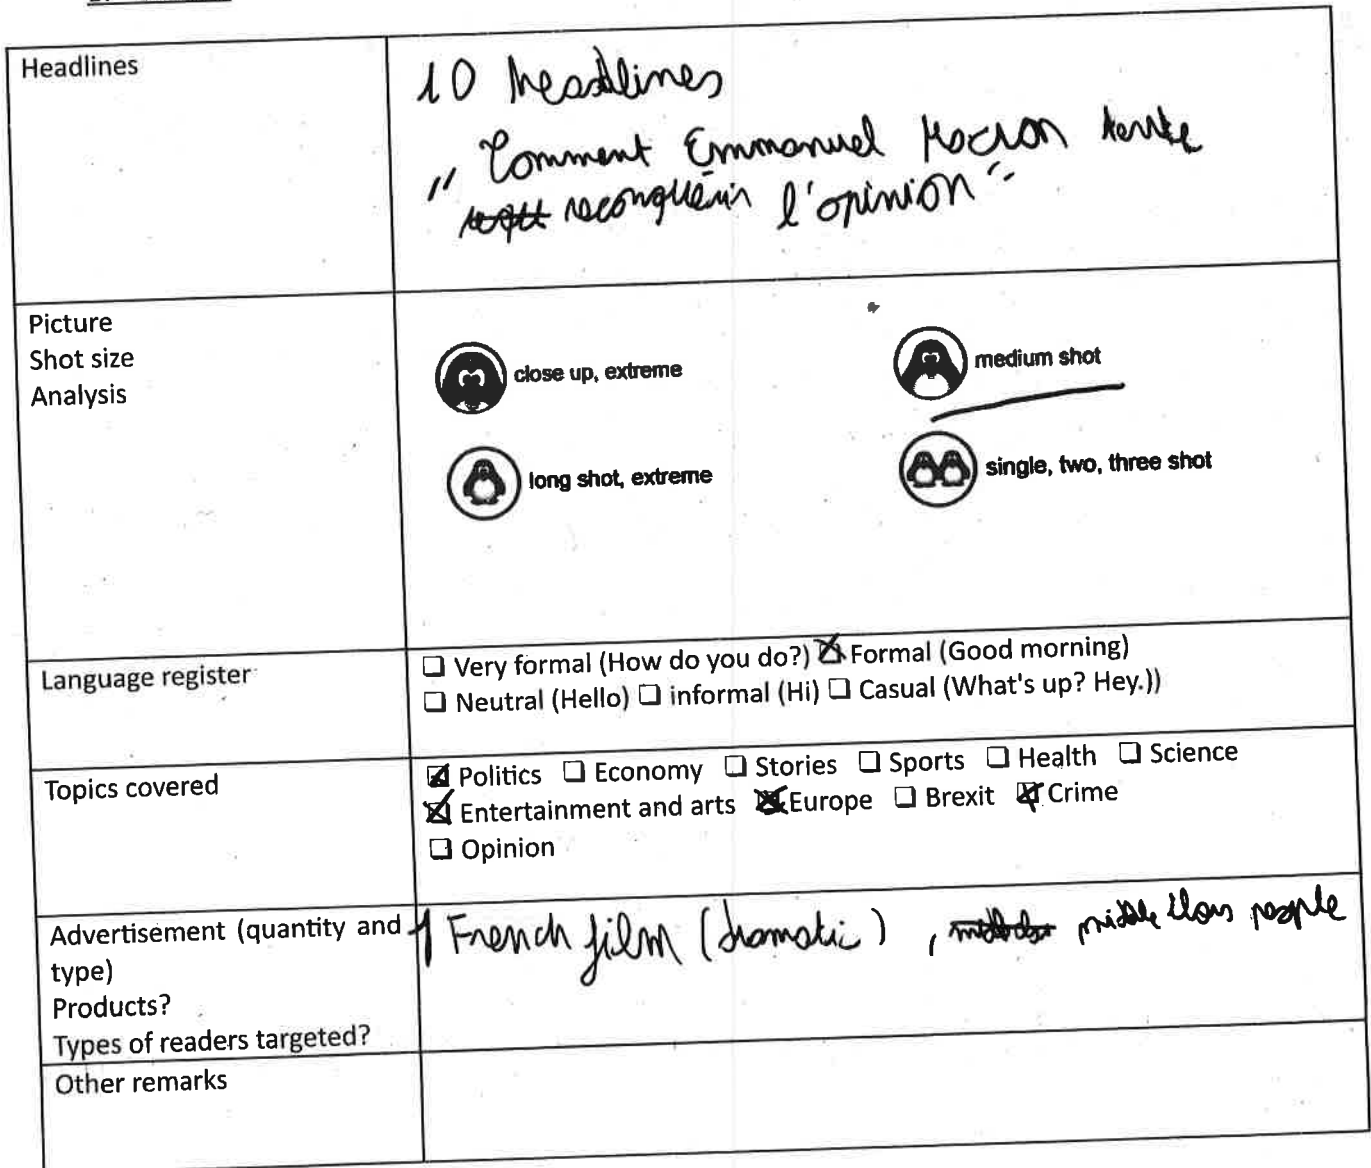 Headlines
10 headlines
"Comment Emmanuel Macron tente
reconquérir l'opinion"
Picture
Shot size
Analysis
close up, extreme
medium shot
long shot, extreme
single, two, three shot
Language register
❏ Very formal (How do you do?) ☒ Formal (Good morning)
❏ Neutral (Hello) ❏ informal (Hi) ❏ Casual (What's up? Hey.))
Topics covered
☒ Politics ❏ Economy ❏ Stories ❏ Sports ❏ Health ❏ Science
☒ Entertainment and arts ☒ Europe ❏ Brexit ☒ Crime
❏ Opinion
Advertisement (quantity and
type)
Products?
Types of readers targeted?
1 French film (dramatic), middle class people
Other remarks